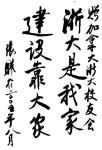 赠加拿大浙大校友会
浙大是我家
建设靠大家
二〇〇五年八月